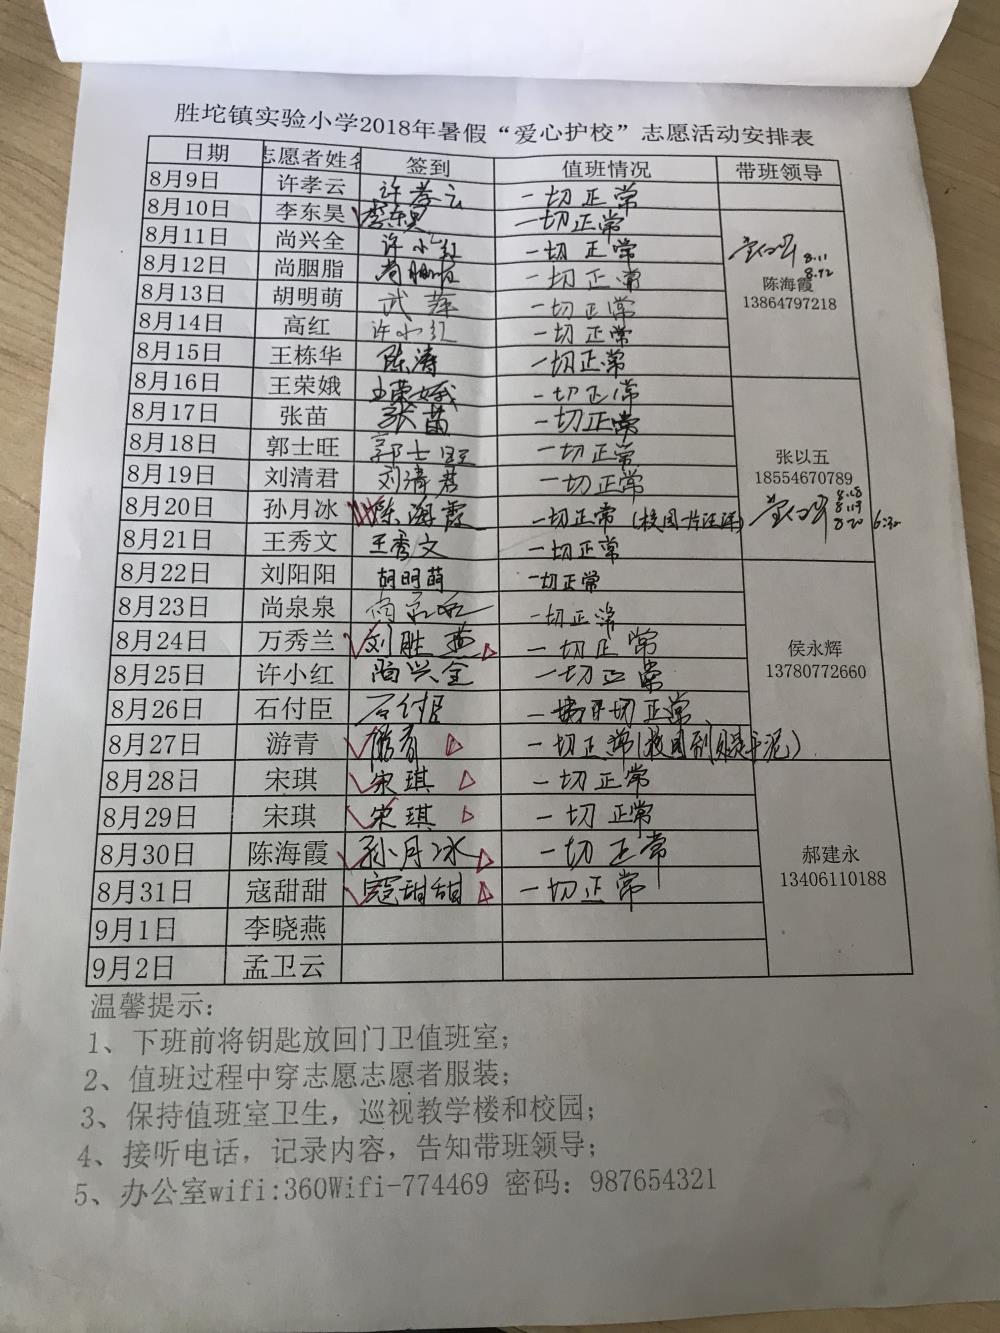 胜坨镇实验小学2018年暑假“爱心护校”志愿活动安排表
日期 志愿者姓名 签到 值班情况 带班领导
8月9日 许孝云 许孝云 一切正常
8月10日 李东昊 李东昊 一切正常
8月11日 尚兴全 许小红 一切正常 8.11
8月12日 尚胭脂 尚胭脂 一切正常 8.12
陈海霞
13864797218
8月13日 胡明萌 武萍 一切正常
8月14日 高红 许小红 一切正常
8月15日 王栋华 陈涛 一切正常
8月16日 王荣娥 王荣娥 一切正常
8月17日 张苗 张苗 一切正常
8月18日 郭士旺 郭士旺 一切正常
张以五
18554670789
8月19日 刘清君 刘清君 一切正常
8.18
8.19
8.20 6:30
8月20日 孙月冰 陈海霞 一切正常(校园一片汪洋)
8月21日 王秀文 王秀文 一切正常
8月22日 刘阳阳 胡明萌 一切正常
8月23日 尚泉泉 一切正常
8月24日 万秀兰 刘胜燕 一切正常
侯永辉
13780772660
8月25日 许小红 尚兴全 一切正常
8月26日 石付臣 石付臣 一切正常
8月27日 游青 游青 一切正常
8月28日 宋琪 宋琪 一切正常
8月29日 宋琪 宋琪 一切正常
8月30日 陈海霞 孙月冰 一切正常
郝建永
13406110188
8月31日 寇甜甜 寇甜甜 一切正常
9月1日 李晓燕
9月2日 孟卫云
温馨提示:
1、下班前将钥匙放回门卫值班室;
2、值班过程中穿志愿志愿者服装;
3、保持值班室卫生，巡视教学楼和校园;
4、接听电话，记录内容，告知带班领导;
5、办公室wifi:360Wifi-774469 密码: 987654321